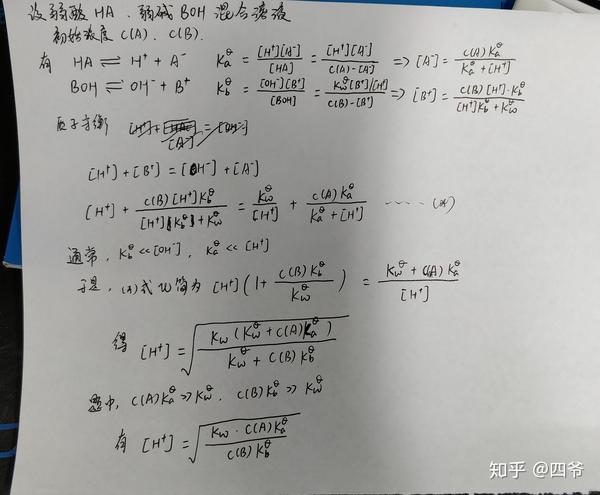 设弱酸 HA、弱碱 BOH 混合溶液
初始浓度 C(A)、C(B).
有 HA ⇌ H⁺ + A⁻ Kₐ^θ = [H⁺][A⁻]/[HA] = [H⁺][A⁻]/(C(A)-[A⁻]) => [A⁻] = C(A)Kₐ^θ/(Kₐ^θ+[H⁺])
BOH ⇌ OH⁻ + B⁺ K_b^θ = [OH⁻][B⁺]/[BOH] = (K_w^θ[B⁺]/[H⁺])/(C(B)-[B⁺]) => [B⁺] = C(B)[H⁺]·K_b^θ/([H⁺]K_b^θ+K_w^θ)
质子守衡
[H⁺] + [B⁺] = [OH⁻] + [A⁻]
[H⁺] + C(B)[H⁺]K_b^θ/([H⁺]K_b^θ+K_w^θ) = K_w^θ/[H⁺] + C(A)Kₐ^θ/(Kₐ^θ+[H⁺]) ······ (*)
通常, K_b^θ << [OH⁻], Kₐ^θ << [H⁺]
于是, (*)式化简为 [H⁺](1 + C(B)K_b^θ/K_w^θ) = (K_w^θ + C(A)Kₐ^θ)/[H⁺]
得 [H⁺] = √(K_w(K_w^θ + C(A)Kₐ^θ)/(K_w^θ + C(B)K_b^θ))
题中, C(A)Kₐ^θ >> K_w^θ, C(B)K_b^θ >> K_w^θ
有 [H⁺] = √(K_w·C(A)Kₐ^θ/(C(B)K_b^θ))
知乎 @四爷